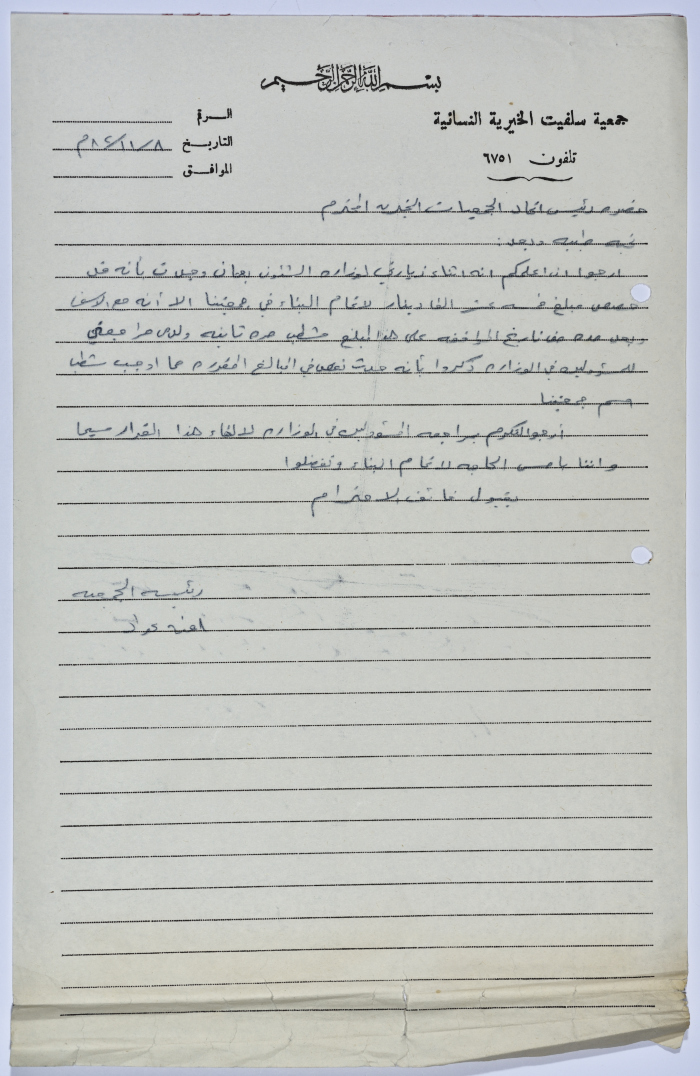 بسم الله الرحمن الرحيم
جمعية سلفيت الخيرية النسائية
تلفون ٦٧٥١
الرقم
التاريخ ٨٤/١١/٨م
الموافق
حضرة رئيس اتحاد الجمعيات الخيرية المحترم
تحية طيبة وبعد:
ارجوا ان اعلمكم انه اثناء زيارتي لوزارة الشئون بعمان وجدت بأنه قد
خصص مبلغ خمسة عشر الفا دينار لاتمام البناء في جمعيتنا الا أنه مع الاسف
وبعد مدة من تاريخ الموافقه على هذا المبلغ شطب مرة ثانيه ولدى مراجعتي
للمسؤولين في الوزاره ذكروا بأنه حدث نقص في المبالغ المقرره مما اوجب شطب
اسم جمعيتنا
أرجوا التكرم بمراجعه المسئولين في الوزاره لالغاء هذا القرار سيما
واننا بامس الحاجه لاتمام البناء وتفضلوا
بقبول فائق الاحترام
رئيسة الجمعيه
امنه